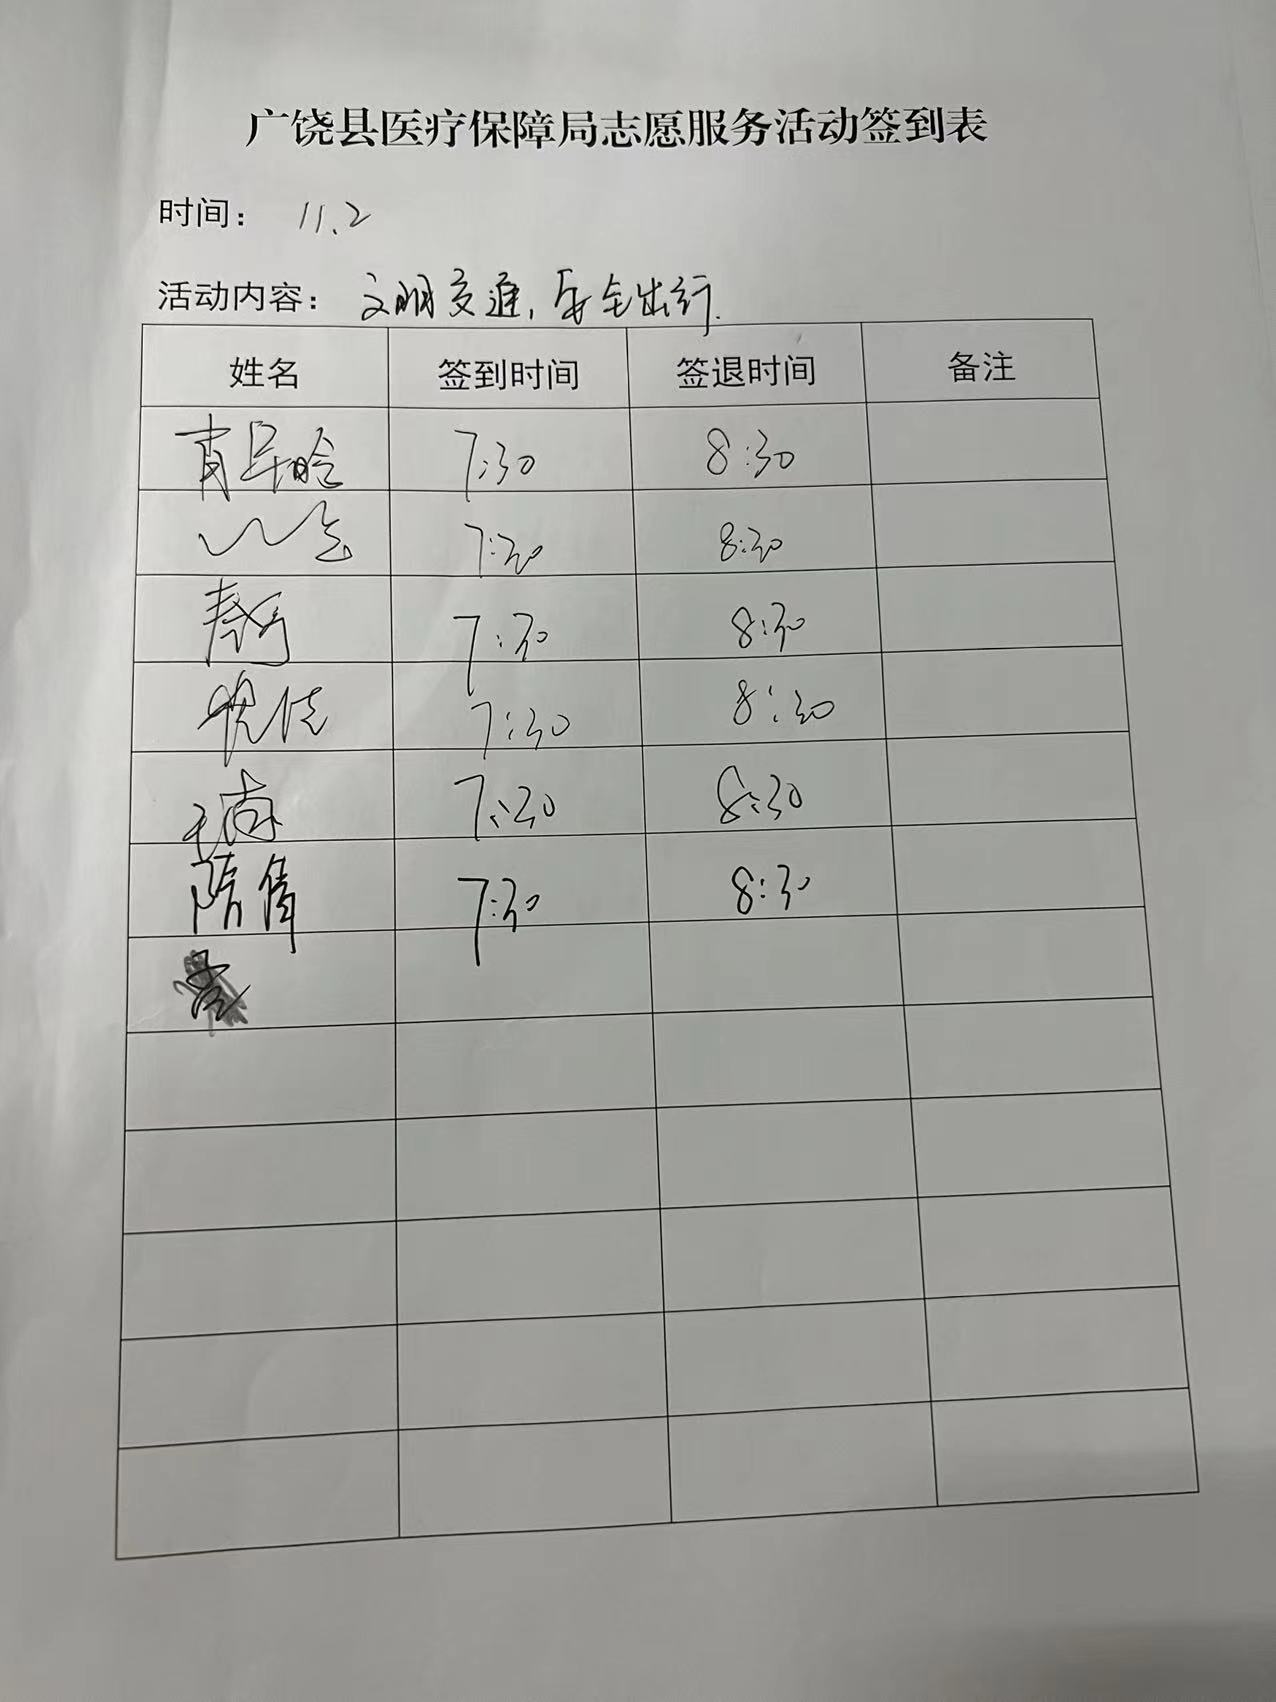 广饶县医疗保障局志愿服务活动签到表
时间： 11.2
活动内容： 文明交通,安全出行.
姓名 签到时间 签退时间 备注
7:30 8:30
7:30 8:30
7:30 8:30
7:30 8:30
7:30 8:30
隋倩 7:30 8:30